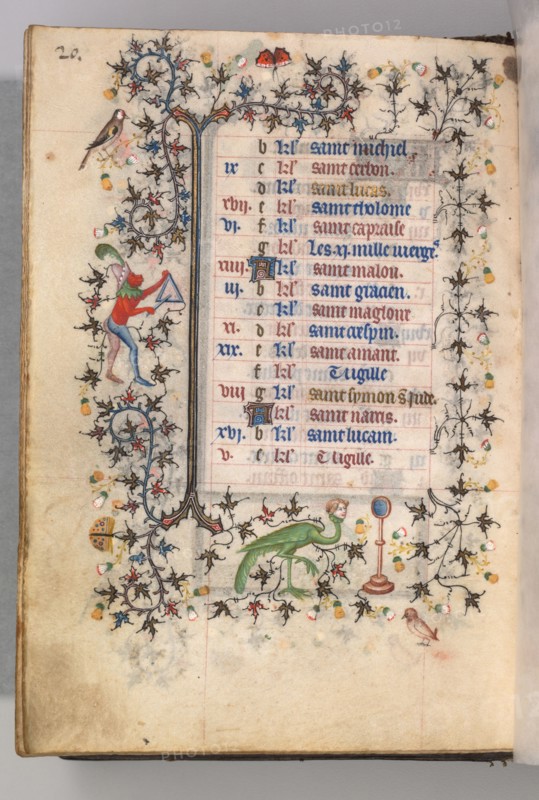 20.
b kl' saint michiel
ix c kl' saint cerbon.
d kl' saint lucas.
xvij. e kl' saint tholome
vj. f kl' saint capraise
g kl' Les .xj. mille vierges
xiiij. A kl' saint malou.
iij. b kl' saint gracien.
c kl' saint magloire
xj. d kl' saint crespin.
xix. e kl' saint amant.
f kl' vigille
viij g kl' saint symon s' jude.
A kl' saint narcis.
xvj. b kl' saint lucain.
v. c kl' vigille.
PHOTO12
PHOTO12